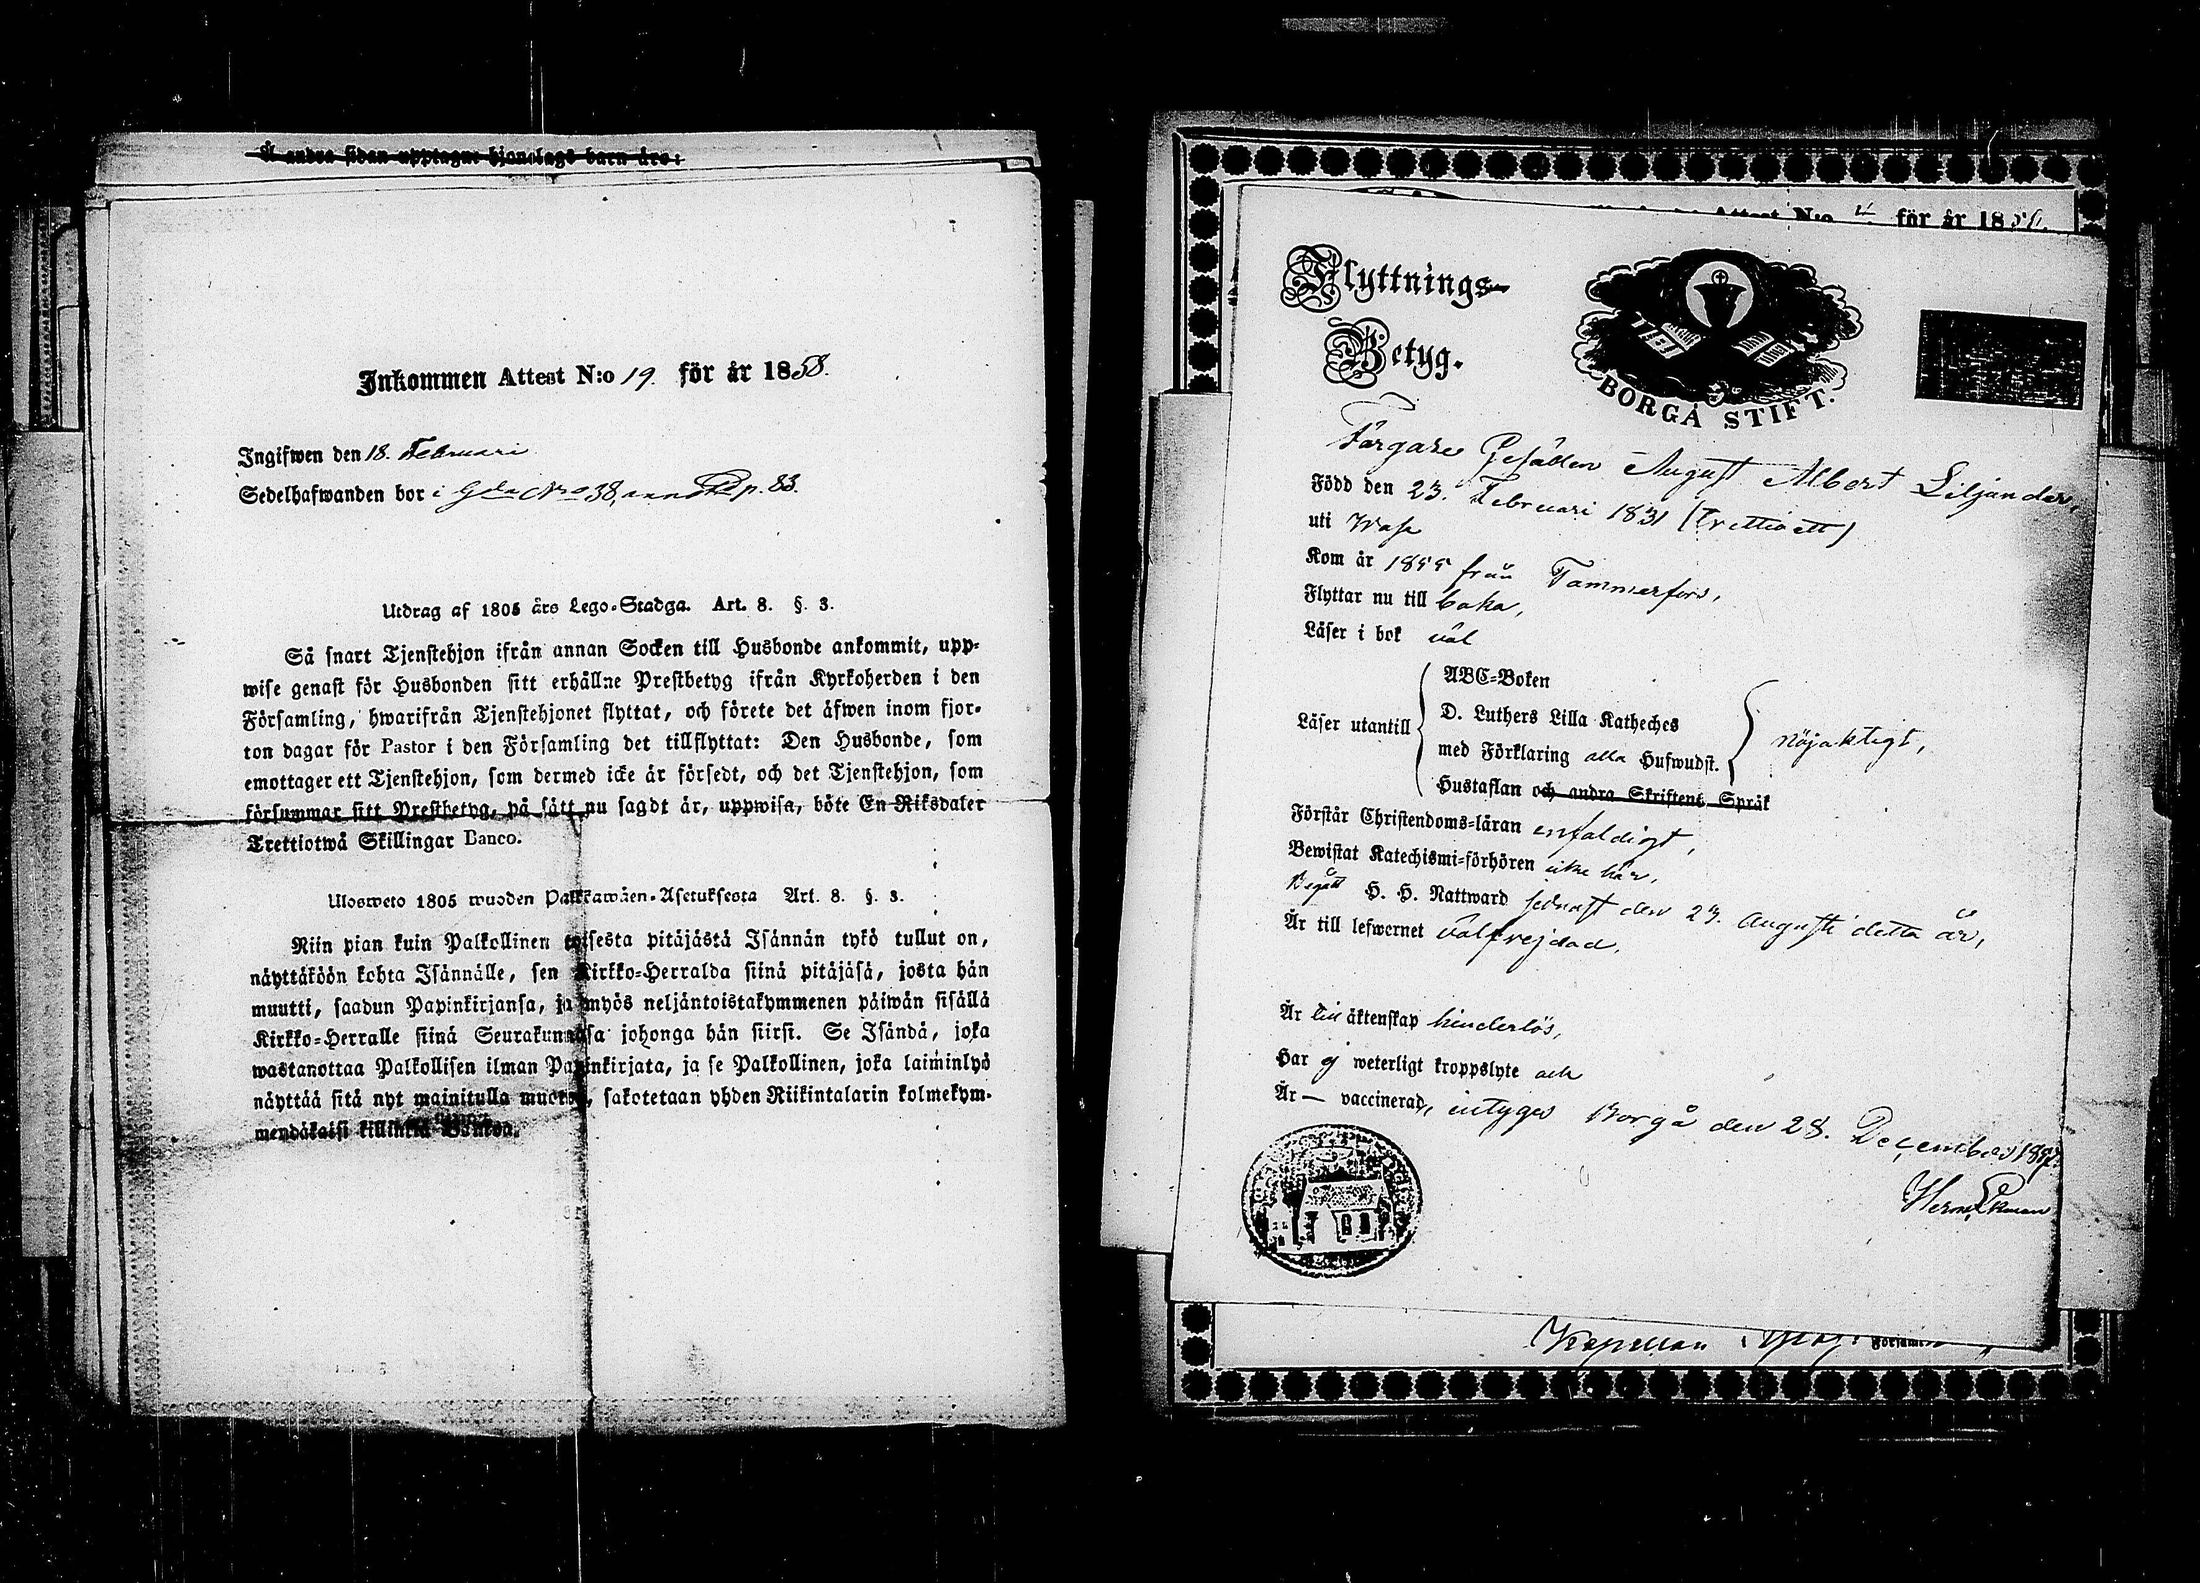 Å andra sidan upptagne hjonelags barn äro:
Inkommen Attest N:o 19. för år 1858.
Ingifwen den 18. Februari
Sedelhafwanden bor i Gden No 38, p. 83.
Utdrag af 1805 års Lego-Stadga. Art. 8. §. 3.
Så snart Tjenstehjon ifrån annan Socken till Husbonde ankommit, upp-
wise genast för Husbonden sitt erhållne Prestbetyg ifrån Kyrkoherden i den
Församling, hwarifrån Tjenstehjonet flyttat, och förete det äfwen inom fjor-
ton dagar för Pastor i den Församling det tillflyttat: Den Husbonde, som
emottager ett Tjenstehjon, som dermed icke är försedt, och det Tjenstehjon, som
försummar sitt Prestbetyg, på sätt nu sagdt är, uppwisa, böte En Riksdaler
Trettiotwå Skillingar Banco.
Ulosweto 1805 wuoden Palkkawäen-Asetuksesta Art. 8. §. 3.
Niin pian kuin Palkollinen toisesta pitäjästä Isännän tykö tullut on,
näyttäköön kohta Isännälle, sen Kirkko-Herralda siinä pitäjäsä, josta hän
muutti, saadun Papinkirjansa, ja myös neljäntoistakymmenen päiwän sisällä
Kirkko-Herralle siinä Seurakunnasa johonga hän siirsi. Se Isändä, joka
wastanottaa Palkollisen ilman Papinkirjata, ja se Palkollinen, joka laiminlyö
näyttää sitä nyt mainitulla muotoa, sakotetaan yhden Riikintalarin kolmekym-
mendäkaisi killinkiä Bankoa.
Attest N:o 4 för år 1856.
Flyttnings-
Betyg.
BORGÅ STIFT.
Färgare Gesällen August Albert Liljander,
Född den 23. Februari 1831 (trettioett)
uti Wasa
Kom år 1855 från Tammerfors,
Flyttar nu till baka,
Läser i bok väl
Läser utantill
ABC-Boken
D. Luthers Lilla Katheches
med Förklaring alla Hufwudst.
Hustaflan och andra Skriftens Språk
nöjaktigt,
Förstår Christendoms-läran enfaldigt,
Bewistat Katechismi-förhören icke här,
Begått H. H. Nattward sednast den 23. Augusti detta år,
Är till lefwernet välfrejdad,
Är till äktenskap hinderlös,
Har ej weterligt kroppslyte och
Är — vaccinerad, intygas Borgå den 28. December 1857.
Herm. Ekman
Kapellan Församl